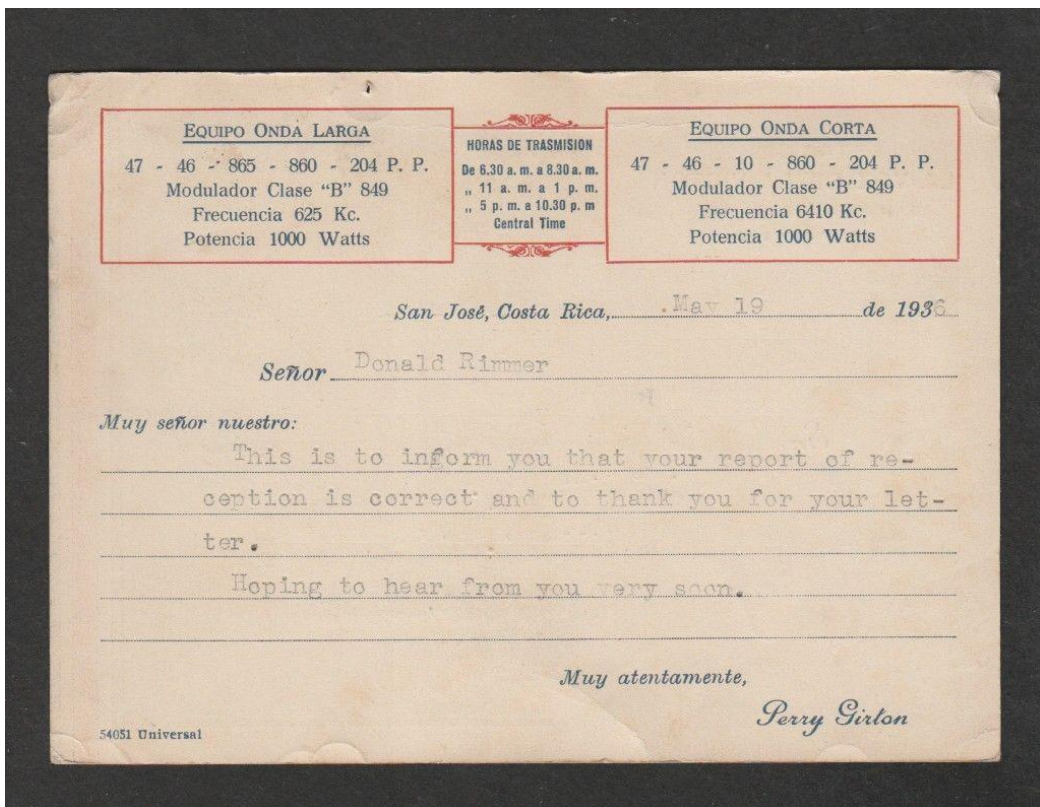 EQUIPO ONDA LARGA
47 - 46 - 865 - 860 - 204 P. P.
Modulador Clase “B” 849
Frecuencia 625 Kc.
Potencia 1000 Watts
HORAS DE TRASMISION
De 6.30 a. m. a 8.30 a. m.
„ 11 a. m. a 1 p. m.
„ 5 p. m. a 10.30 p. m
Central Time
EQUIPO ONDA CORTA
47 - 46 - 10 - 860 - 204 P. P.
Modulador Clase “B” 849
Frecuencia 6410 Kc.
Potencia 1000 Watts
San José, Costa Rica, May 19 de 1936
Señor Donald Rimmer
Muy señor nuestro:
This is to inform you that your report of re-
ception is correct and to thank you for your let-
ter.
Hoping to hear from you very soon.
Muy atentamente,
Perry Girton
54051 Universal